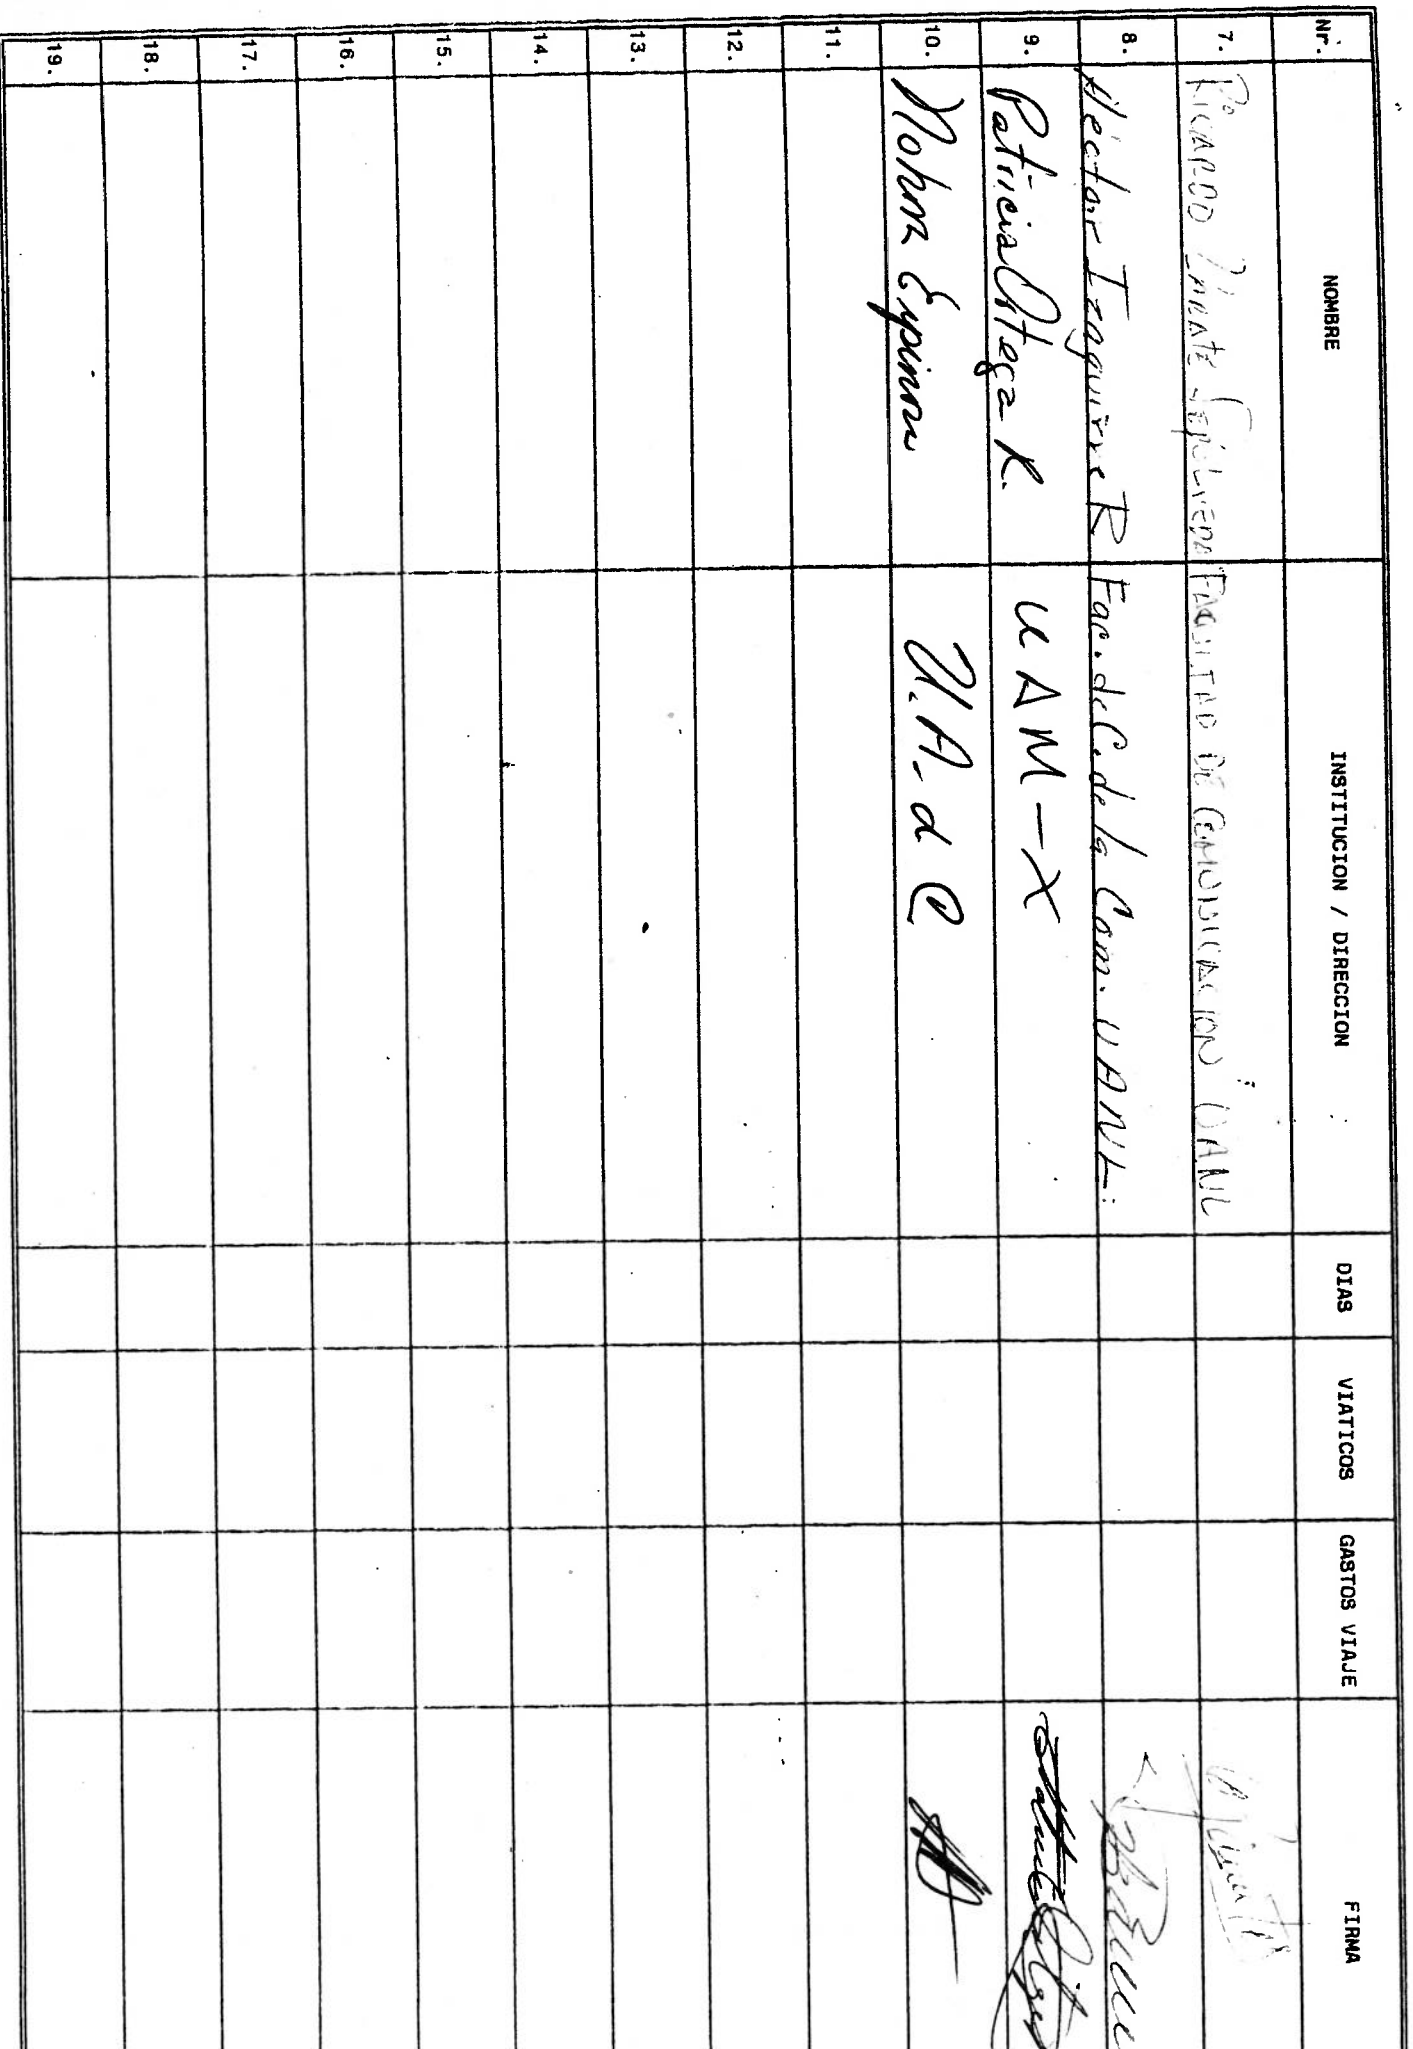 Nr. NOMBRE INSTITUCION / DIRECCION DIAS VIATICOS GASTOS VIAJE FIRMA
7. RICARDO ZARATE SEPULVEDA FACULTAD DE COMUNICACION UANL
8. Héctor Izaguirre R Fac. de C. de la Com. UANL.
9. Patricia Ortega R. UAM-X
10. Espinosa U.A. de C
11.
12.
13.
14.
15.
16.
17.
18.
19.